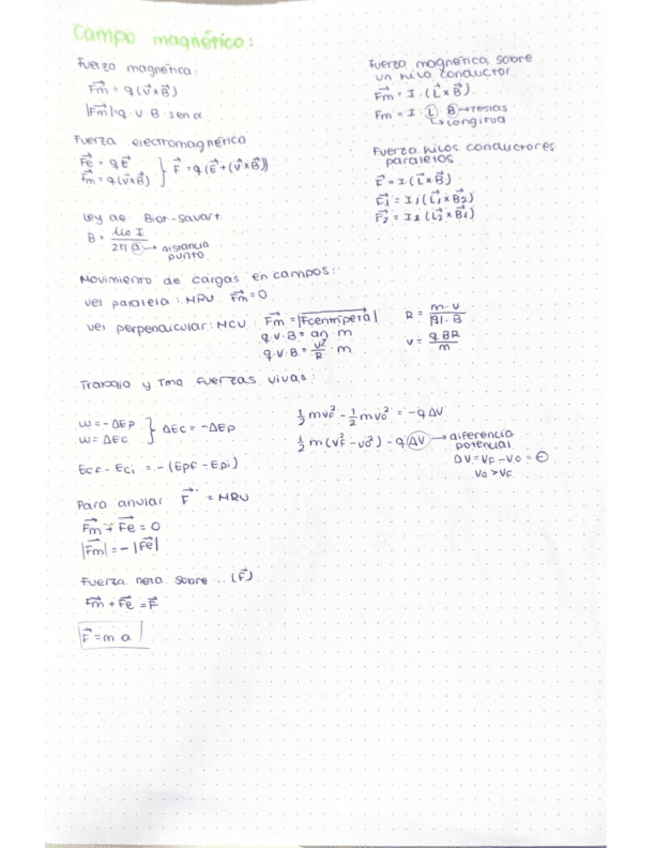 Campo magnético:
Fuerza magnética:
F⃗m = q(v⃗×B⃗)
|F⃗m|=q·v·B·sen α
Fuerza electromagnética
F⃗e = qE⃗
F⃗m = q(v⃗×B⃗) } F⃗ = q(E⃗+(v⃗×B⃗))
Ley de Biot-Savart
B = μ₀ I / 2π d → distancia punto
Fuerza magnética sobre
un hilo conductor
F⃗m = I · (L⃗×B⃗)
Fm = I · L · B → teslas
→ longitud
Fuerza hilos conductores
paralelos
= I (L⃗×B⃗)
= I₁ (L⃗₁×B⃗₂)
F⃗₂ = I₂ (L⃗₂×B⃗₁)
Movimiento de cargas en campos:
vel paralela: MRU F⃗m=0
vel perpendicular: MCU: F⃗m = |Fcentrípeta|
q·v·B = an·m
q·v·B = v²/R · m
R = m·v / |q|·B
v = qBR / m
Trabajo y Tma fuerzas vivas:
W = -ΔEp
W = ΔEc } ΔEc = -ΔEp
Ecf - Eci = -(Epf - Epi)
½ mvf² - ½ mv₀² = -qΔV
½ m(vf² - v₀²) - qΔV → diferencia
potencial
ΔV = Vf - V₀ = ⊖
V₀ > Vf
Para anular F⃗ = MRU
F⃗m + F⃗e = 0
|F⃗m| = -|F⃗e|
Fuerza neta sobre ... (F⃗)
F⃗m + F⃗e = F⃗
F⃗ = m a